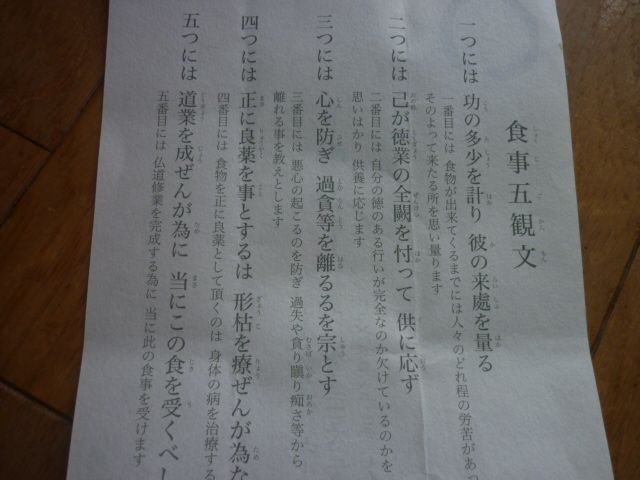 食事五観文
一つには 功の多少を計り 彼の来處を量る
一番目には 食物が出来てくるまでには人々のどれ程の労苦があっ
そのよって来たる所を思い量ります
二つには 己が徳業の全闕を忖って 供に応ず
二番目には 自分の徳のある行いが完全なのか欠けているのかを
思いはかり 供養に応じます
三つには 心を防ぎ 過貪等を離るるを宗とす
三番目には 悪心の起こるのを防ぎ 過失や貪り瞋り痴さ等から
離れる事を教えとします
四つには 正に良薬を事とするは 形枯を療ぜんが為な
四番目には 食物を正に良薬として頂くのは 身体の病を治療する
五つには 道業を成ぜんが為に 当にこの食を受くべし
五番目には 仏道修業を完成する為に 当に此の食事を受けます